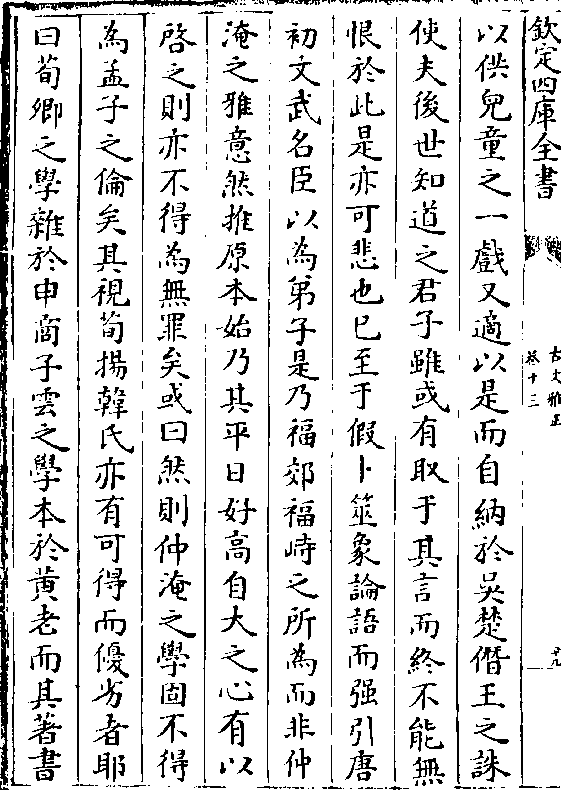 欽定四庫全書
古文雅正
卷十三
以供兒童之一戲又適以是而自納於吳楚僭王之誅
使夫後世知道之君子雖或有取于其言而終不能無
恨於此是亦可悲也已至于假卜筮象論語而强引唐
初文武名臣以為弟子是乃福郊福畤之所為而非仲
淹之雅意然推原本始乃其平日好高自大之心有以
啓之則亦不得為無罪矣或曰然則仲淹之學固不得
為孟子之倫矣其視荀揚韓氏亦有可得而優劣者耶
曰荀卿之學雜於申商子雲之學本於黄老而其著書